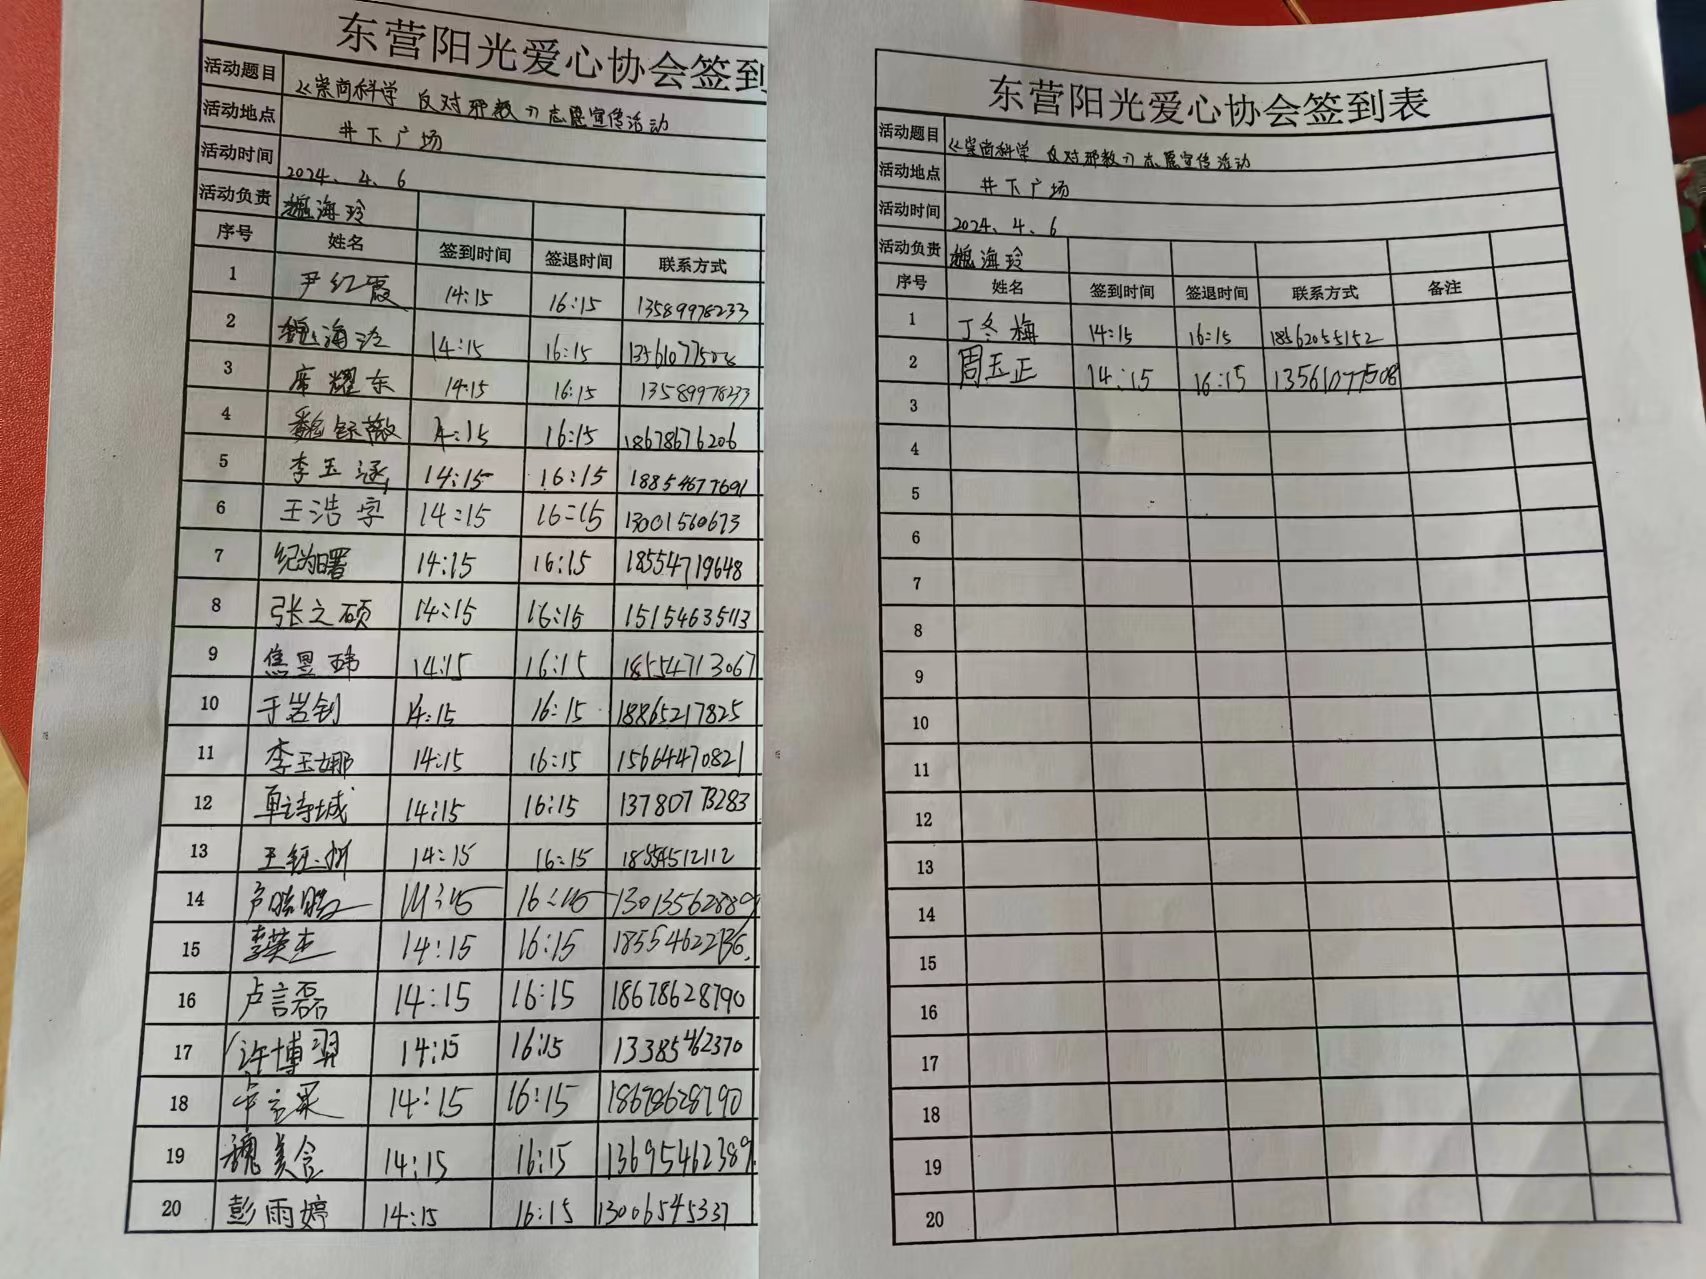 东营阳光爱心协会签到
活动题目 《崇尚科学 反对邪教》志愿宣传活动
活动地点 井下广场
活动时间 2024、4、6
活动负责 魏海玲
序号 姓名 签到时间 签退时间 联系方式
1 尹红霞 14:15 16:15 13589978233
2 魏海玲 14:15 16:15 13561077508
3 席耀东 14:15 16:15 13589978233
4 14:15 16:15 18678676206
5 李玉涵 14:15 16:15 18854677691
6 王浩宇 14:15 16:15 13001560673
7 纪为曙 14:15 16:15 18554719648
8 张之硕 14:15 16:15 15154635113
9 焦昱玮 14:15 16:15 18554713067
10 于岩钊 14:15 16:15 18865217825
11 李玉娜 14:15 16:15 15664470821
12 单诗城 14:15 16:15 13780773283
13 14:15 16:15
14 14:15 16:15 13013562889
15 李英杰 14:15 16:15
16 卢言磊 14:15 16:15 18678628790
17 许博羿 14:15 16:15 13385462370
18 14:15 16:15 18678628790
19 魏美含 14:15 16:15 13695462389
20 彭雨婷 14:15 16:15 13006545337
东营阳光爱心协会签到表
活动题目 《崇尚科学 反对邪教》志愿宣传活动
活动地点 井下广场
活动时间 2024、4、6
活动负责 魏海玲
序号 姓名 签到时间 签退时间 联系方式 备注
1 丁冬梅 14:15 16:15 18562055152
2 周玉正 14:15 16:15 13561077508
3
4
5
6
7
8
9
10
11
12
13
14
15
16
17
18
19
20